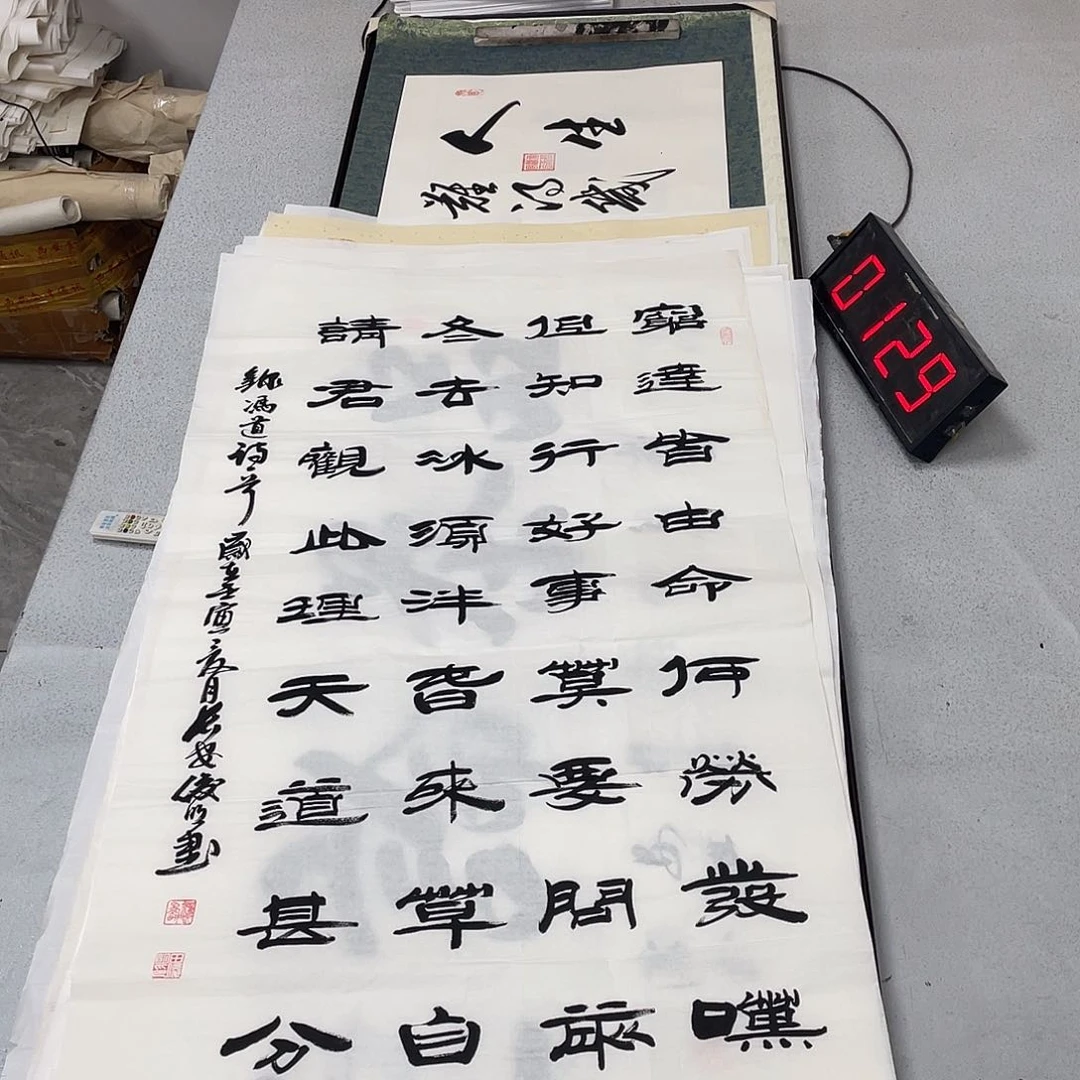 人生
難得
0129
窮達皆由命何勞發嘆
但知行好事莫要問前
冬去冰源泮春來草自
請君觀此理天道甚分
錄馮道詩一首 歲在壬寅夏月長安俊明書